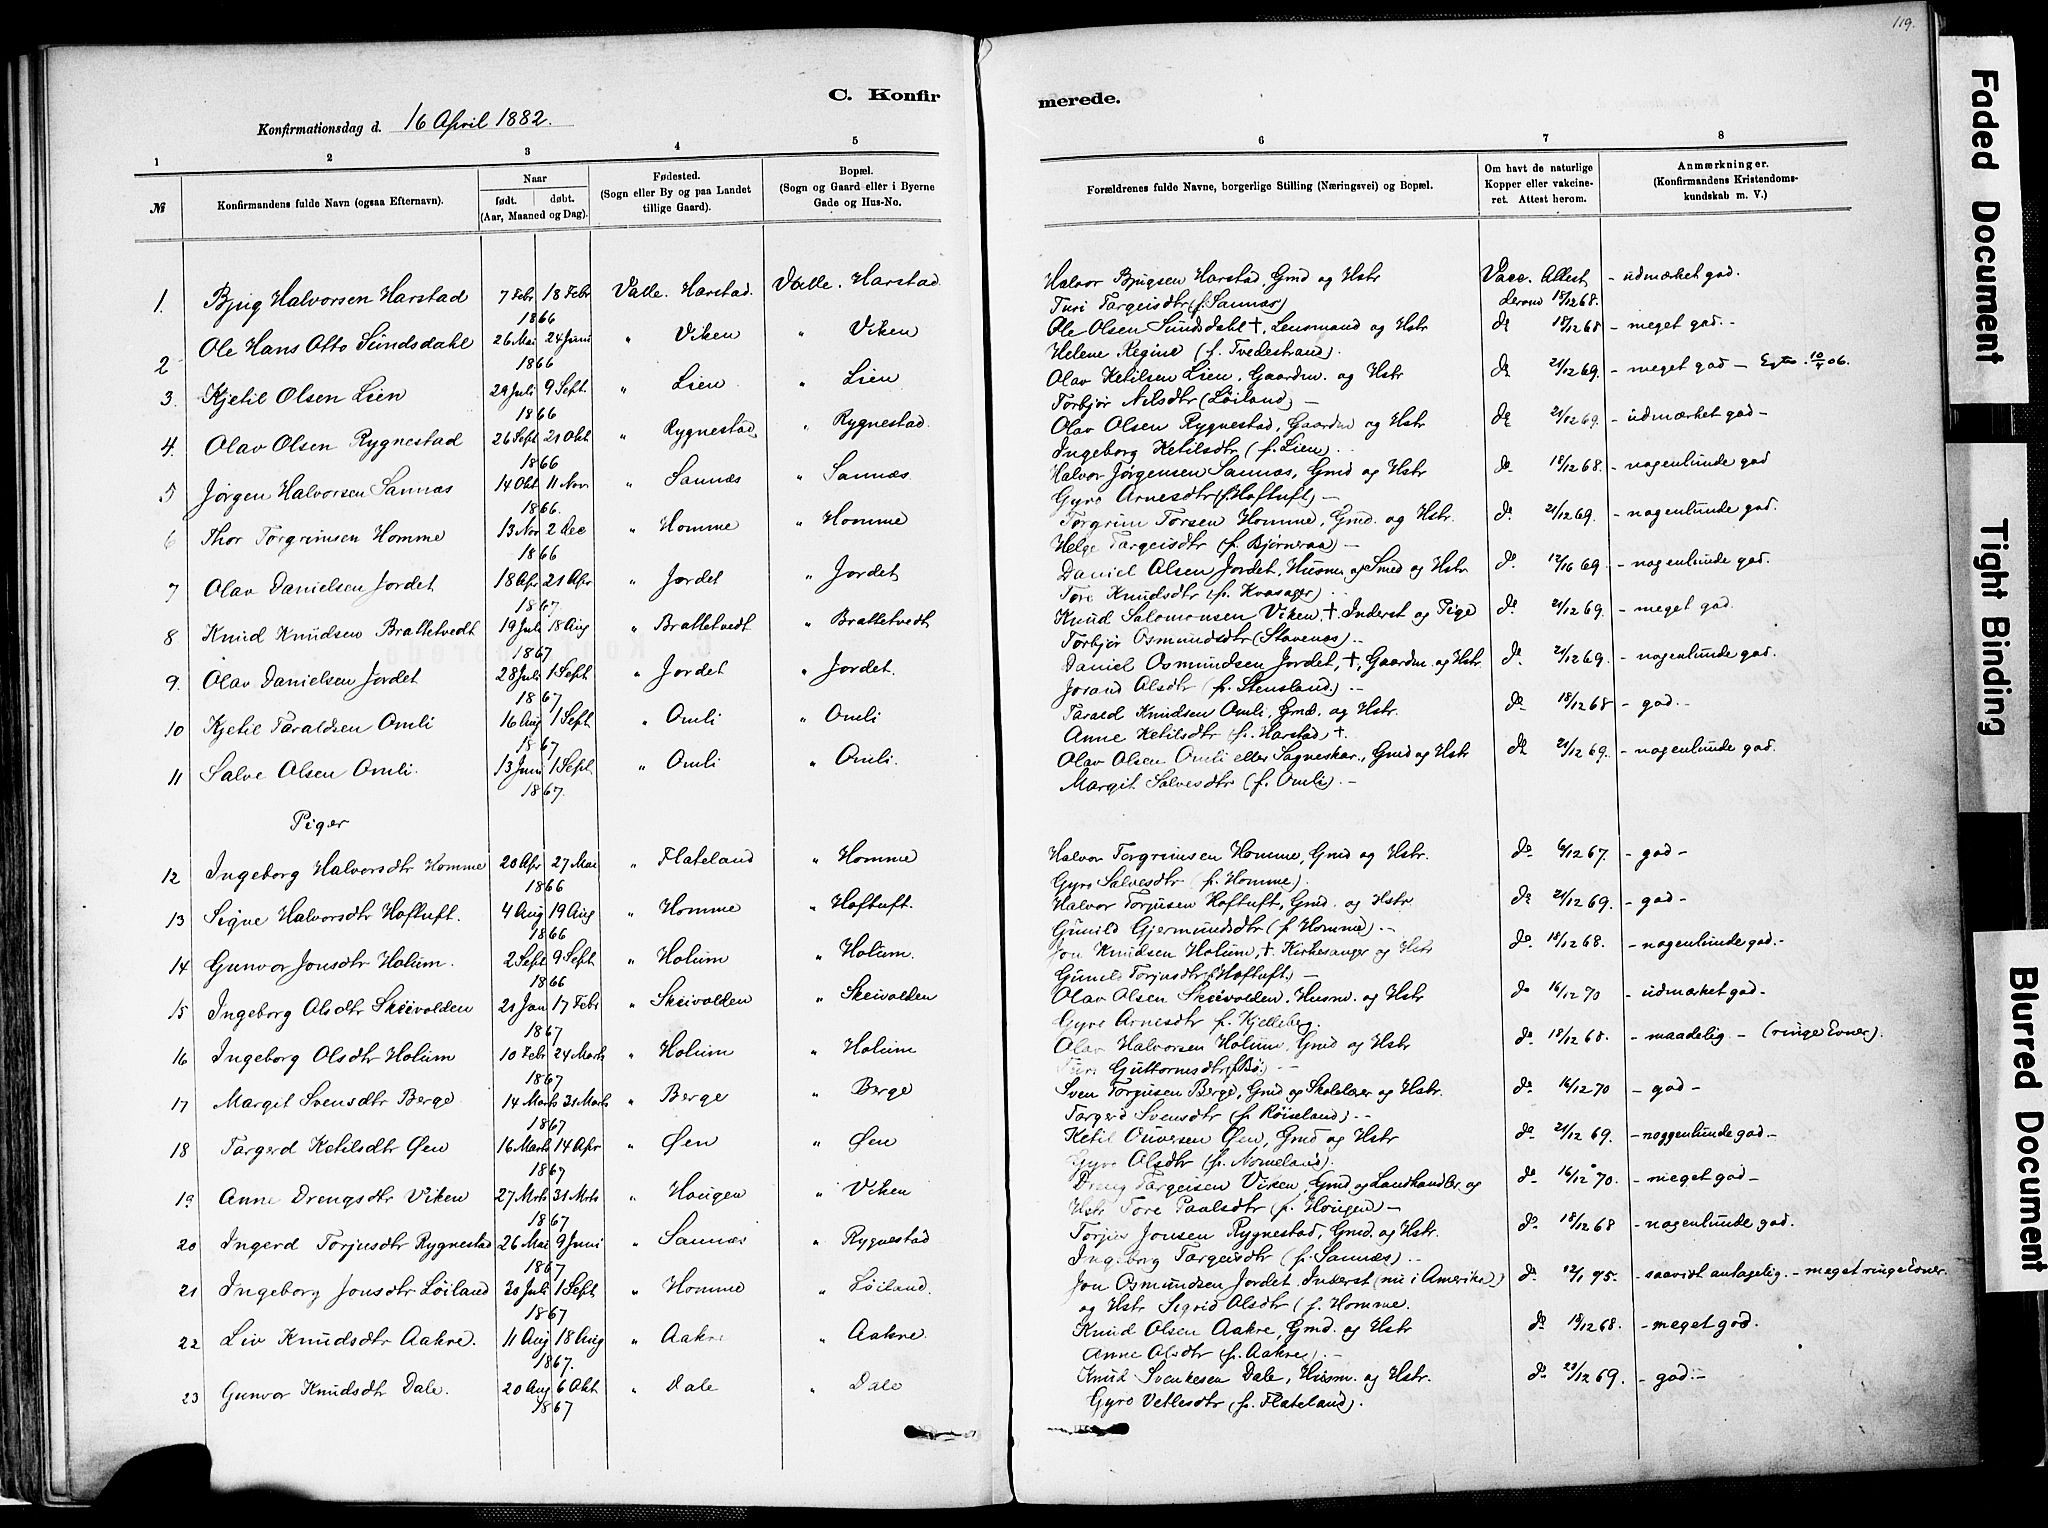 119.
C. Konfirmerede.
Konfirmationsdag d. 16 April 1882.
1 2 3 4 5 6 7 8
№
Konfirmandens fulde Navn (ogsaa Efternavn).
Naar
født. døbt.
(Aar, Maaned og Dag).
Fødested.
(Sogn eller By og paa Landet
tillige Gaard).
Bopæl.
(Sogn og Gaard eller i Byerne
Gade og Hus-No.
Forældrenes fulde Navne, borgerlige Stilling (Næringsvei) og Bopæl.
Om havt de naturlige
Kopper eller vakcine-
ret. Attest herom.
Anmærkninger.
(Konfirmandens Kristendoms-
kundskab m. V.)
1. Bjug Halvorsen Harstad 7 Febr 18 Febr 1866 Valle. Harstad. Valle. Harstad. Halvor Bjugsen Harstad Gmd og Hstr Vacc. Attest - udmærket god.
Turi Targeisdtr (f. Sannæs) derom 18/12 68.
2 Ole Hans Otto Sundsdahl 26 Mai 24 Juni 1866 " Viken " Viken Ole Olsen Sundsdahl †, Lensmand og Hstr do 18/12 68 - meget god. -
Helene Regine (f. Tvedestrand).
3. Kjetil Olsen Lien 29 Juli 9 Sept. 1866 " Lien " Lien Olav Ketilsen Lien, Gaardm. og Hstr do 21/12 69. - meget god -
Torbjør Nilsdtr (Løiland) -
4. Olav Olsen Rygnestad 26 Sept 21 Okt 1866 " Rygnestad " Rygnestad. Olav Olsen Rygnestad, Gaardm og Hstr do 21/12 69. - udmærket god -
Ingeborg Ketilsdtr (f. Lien).
5 Jørgen Halvorsen Sannæs 14 Okt 11 Nov 1866. " Sannæs " Sannæs. Halvor Jørgensen Sannæs, Gmd og Hstr do 18/12 68. - nogenlunde god
Gyro Arnesdtr (f. Hoftuft) -
6 Thor Torgrimsen Homme 13 Nov 2 Dec 1866 " Homme " Homme Torgrim Torsen Homme, Gmd. og Hstr. do 21/12 69. - nogenlunde god.
Helge Targeisdtr (f. Bjørneraa) -
7 Olav Danielsen Jordet 18 Apr 21 Apr 1867. " Jordet " Jordet Daniel Olsen Jordet, Husm og Smed og Hstr do - nogenlunde god.
Tore Knudsdtr (f. Kvasager).
8 Knud Knudsen Brattetvedt 19 Juli 18 Aug 1867 " Brattetvedt " Brattetvedt Knud Salomonsen Viken † Inderst og Pige do 21/12 69. - meget god.
Torbjør Osmundsdtr (Stavenes). -
9. Olav Danielsen Jordet 28 Juli 1 Sept. 1867 " Jordet " Jordet. Daniel Osmundsen Jordet, †, Gaardm. og Hstr. do 21/12 69. - nogenlunde god.
Jorand Olsdtr (f. Stensland). -
10 Kjetil Taraldsen Omli 16 Aug 1 Sept. 1867 " Omli " Omli Tarald Knudsen Omli, Gmd. og Hstr. do 18/12 68 - god. -
Anne Ketilsdtr (f. Harstad) †.
11 Salve Olsen Omli. 13 Juni 1 Sept. 1867. " Omli " Omli. Olav Olsen Omli eller Sagneskar., Gmd og Hstr do 21/12 69. - nogenlunde god.
Margit Salvesdtr (f. Omli). -
Piger
12 Ingeborg Halvorsdtr Homme 20 Apr 27 Mai 1866 " Flateland " Homme Halvor Torgrimsen Homme, Gmd og Hstr. do 6/12 67. - god -
Gyro Salvesdtr (f. Homme).
13 Signe Halvorsdtr Hoftuft. 4 Aug 19 Aug 1866 " Homme " Hoftuft. Halvor Torjusen Hoftuft, Gmd. og Hstr. do 21/12 69. - god -
Gunild Gjermundsdtr (f. Homme). -
14 Gunvor Jonsdtr Holum. 2 Sept 9 Sept 1866 " Holum " Holum. Jon Knudsen Holum, † Kirkesanger og Hstr do 18/12 68. - nogenlunde god. -
Gunild Torjusdtr (f. Hoftuft.) -
15 Ingeborg Olsdtr Skeivolden 21 Jan 17 Febr 1867 " Skeivolden " Skeivolden Olav Olsen Skeivolden, Husm. og Hstr do 16/12 70 - udmærket god -
Gyro Arnesdtr f. Kjelleberg.
16 Ingeborg Olsdtr Holum 10 Febr 24 Marts 1867 " Holum " Holum Olav Halvorsen Holum, Gmd og Hstr do 18/12 68. - maadelig - (ringe Evner).
Turi Guttormsdtr (Bø). -
17 Margit Svensdtr Berge 14 Marts 31 Marts 1867 " Berge " Berge Sven Torjusen Berge, Gmd og Skolelærer og Hstr. do 16/12 70 - god -
Targerd Svensdtr (f. Røiseland). -
18 Targerd Ketilsdtr Øen 16 Marts 14 Apr 1867 " Øen " Øen Ketil Ouversen Øen, Gmd og Hstr do 21/12 69. - noggenlunde god -
Gyro Olsdtr (f. Nomeland).
19 Anne Drengsdtr Viken 27 Mrts 31 Mrts 1867 " Hougen " Viken Dreng Targeisen Viken Gmd og Landhandler og do 16/12 70. - meget god -
Hstr Tore Paalsdtr (f. Hougen) -
20 Ingerd Torjusdtr Rygnestad 26 Mai 9 Juni 1867 " Sannæs " Rygnestad Torjus Jonsen Rygnestad, Gmd. og Hstr. do 18/12 68 - nogenlunde god.
Ingeborg Targeisdtr (f. Sannæs). -
21 Ingeborg Jonsdtr Løiland 30 Juli 1 Sept 1867 " Homme " Løiland. Jon Osmundsen Jordet Inderst (nu i Amerika) do 12/1 75. - saavidt antagelig. - meget ringe Evner.
og Hstr Sigrid Olsdtr (f. Homme.
22 Liv Knudsdtr Aakre. 11 Aug 18 Aug 1867. " Aakre " Aakre. Knud Olsen Aakre, Gmd. og Hstr do 18/12 68. - meget god.
Anne Olsdtr (f. Aakre). -
23 Gunvor Knudsdtr Dale. 20 Aug 6 Okt 1867 " Dale " Dale Knud Svenkesen Dale, Husm. og Hstr. do 20/12 69. - god. -
Gyro Vetlesdtr (f. Flateland).
Faded Document
Tight Binding
Blurred Document